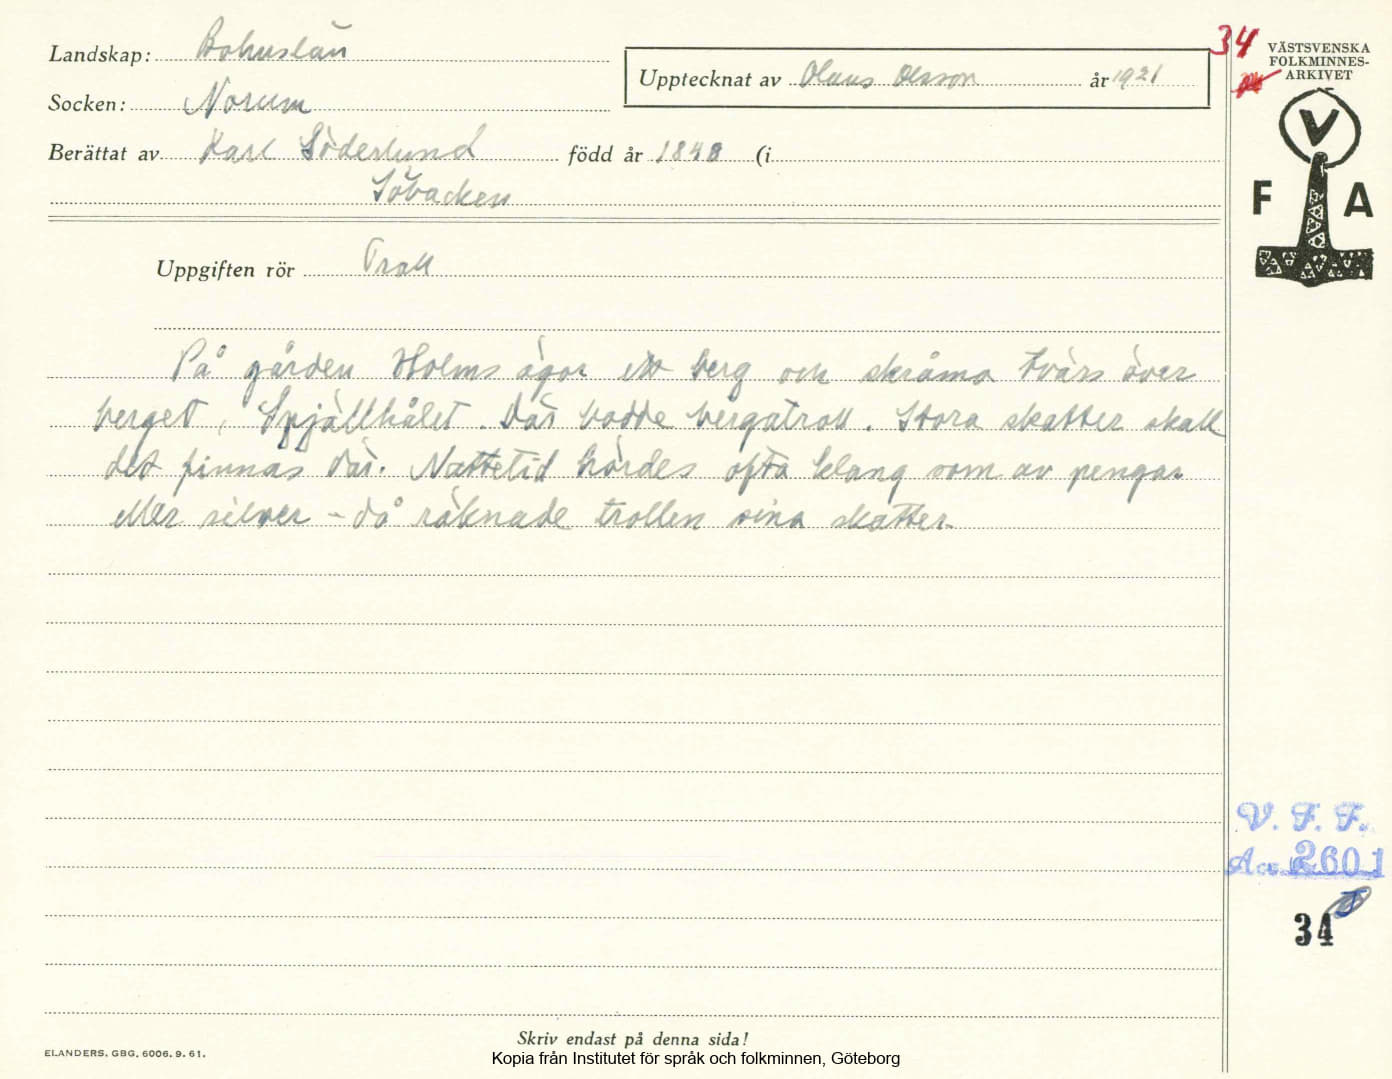 Landskap: Bohuslän
Socken: Norum
Upptecknat av Olaus Olsson år 1921
Berättat av Karl Söderlund född år 1848 (i
Söbacken
34
VÄSTSVENSKA
FOLKMINNES-
ARKIVET
V
F A
Uppgiften rör Troll
På gården Holms ägor ett berg och skråma tvärs över
berget, Spjällhålet. Där bodde bergatroll. Stora skatter skall
det finnas där. Nattetid hördes ofta klang som av pengar
eller silver – då räknade trollen sina skatter.
V. F. F.
Acc. 2601
34
Skriv endast på denna sida!
ELANDERS. GBG. 6006. 9. 61.
Kopia från Institutet för språk och folkminnen, Göteborg